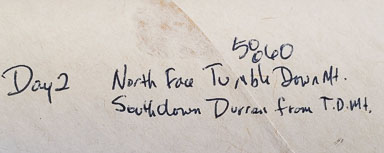 50,060
Day 2 North Face Tumble Down Mt.
South down Durren from T.D.Mt.